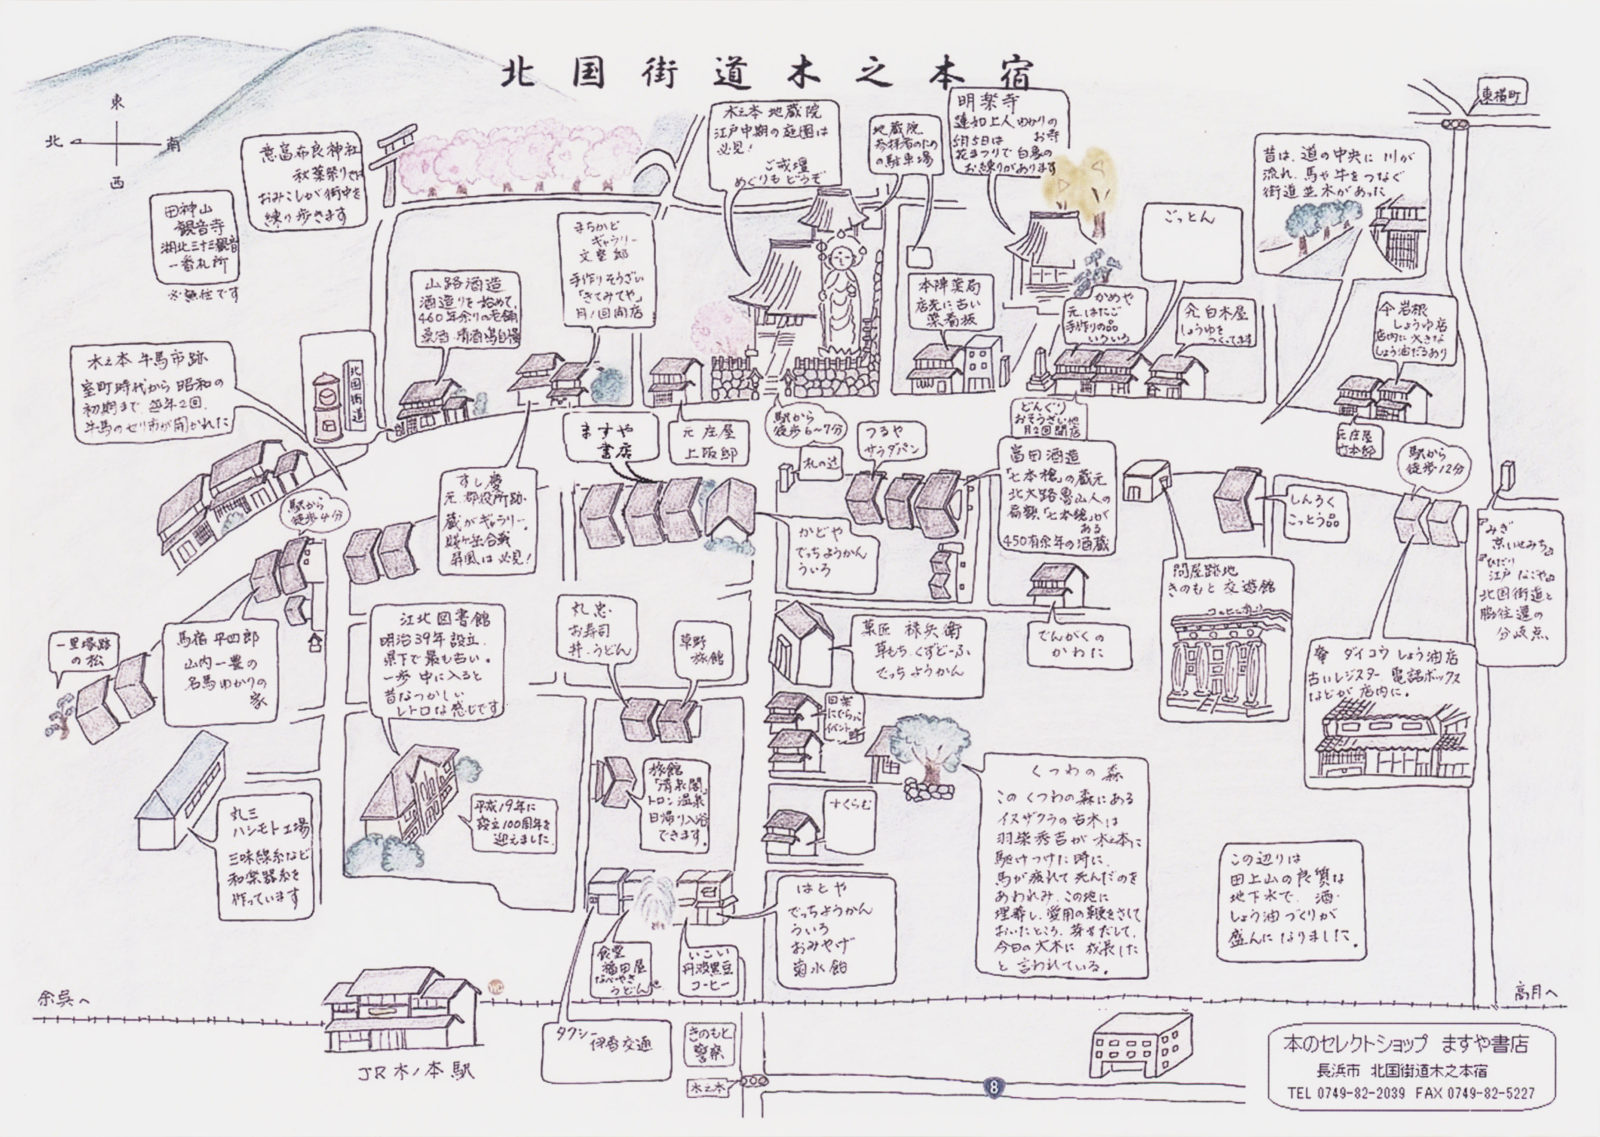 北国街道木之本宿
東
北
南
西
意富布良神社
秋葉祭りでは
おみこしが街中を
練り歩きます
田神山
観音寺
湖北三十三観音
一番札所
※無住です
木之本 地蔵院
江戸中期の庭園は
必見!
ご戒壇
めぐりもどうぞ
地蔵院
参拝者のため
の駐車場
明楽寺
蓮如上人ゆかりの
お寺
5月5日は
花まつりで白象の
お練りがあります
東横町
昔は、道の中央に川が
流れ、馬や牛をつなぐ
街道並木があった
ごっとん
まちかど
ギャラリー
文室邸
手作りそうざい
「きてみてや」
月1回開店
山路酒造
酒造りを始めて、
460年余りの老舗
桑酒・清酒
本陣薬局
店先に古い
薬看板
かめや
元、はたご
手作りの品
いろいろ
白木屋
しょうゆを
つくってます
岩根
しょうゆ店
店内に大きな
しょう油だるあり
木之本 牛馬市跡
室町時代から昭和の
初期まで 毎年2回、
牛馬のセリ市が開かれた
北国街道
ますや
書店
元 庄屋
上阪邸
駅から
徒歩6~7分
札の辻
つるや
サラダパン
どんぐり
おそうざい他
月2回開店
冨田酒造
「七本槍」の蔵元
北大路魯山人の
扁額「七本槍」が
ある
450有余年の酒蔵
元庄屋
竹本邸
駅から
徒歩12分
しんろく
こっとう品
すし慶
元 郡役所跡・
蔵がギャラリー、
賤ヶ岳合戦
屏風は必見!
駅から
徒歩4分
かどや
でっちようかん
ういろ
問屋跡地
きのもと 交遊館
『みぎ
京いせみち』
『ひだり
江戸 なごや』
北国街道と
脇往還の
分岐点
一里塚跡
の松
馬宿 平四郎
山内一豊の
名馬ゆかりの
家
江北図書館
明治39年設立、
県下で最も古い。
一歩 中に入ると
昔なつかしい
レトロな感じです
丸忠
お寿司
丼・うどん
草野
旅館
菓匠 禄兵衛
草もち、くずどーふ
でっちようかん
でんがくの
かわに
ダイコウ しょう油店
古いレジスター 電話ボックス
などが 店内に。
丸三
ハシモト工場
三味線糸など
和楽器糸を
作っています
平成19年に
設立100周年を
迎えました
旅館
「清泉閣」
トロン温泉
日帰り入浴
できます。
すくらむ
くつわの森
この くつわの森にある
イヌザクラの古木は
羽柴秀吉が木之本に
駆けつけた時に、
馬が疲れて死んだのを
あわれみ、この地に
埋葬し、愛用の鞭をさして
おいたところ、芽をだして、
今日の大木に成長した
と言われている。
この辺りは
田上山の良質な
地下水で、酒・
しょう油づくりが
盛んになりました。
はとや
でっちようかん
ういろ
おみやげ
菊水飴
食堂
福田屋
なべやき
うどん他
いこい
丹波黒豆
コーヒー
余呉へ
WC
高月へ
JR木ノ本駅
タクシー
伊香交通
きのもと
警察
木之本
8
本のセレクトショップ ますや書店
長浜市 北国街道木之本宿
TEL 0749-82-2039 FAX 0749-82-5227